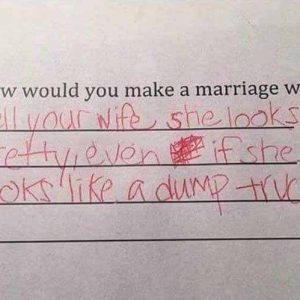 w would you make a marriage w
ll your wife she looks
etty, even if she
oks like a dump truc